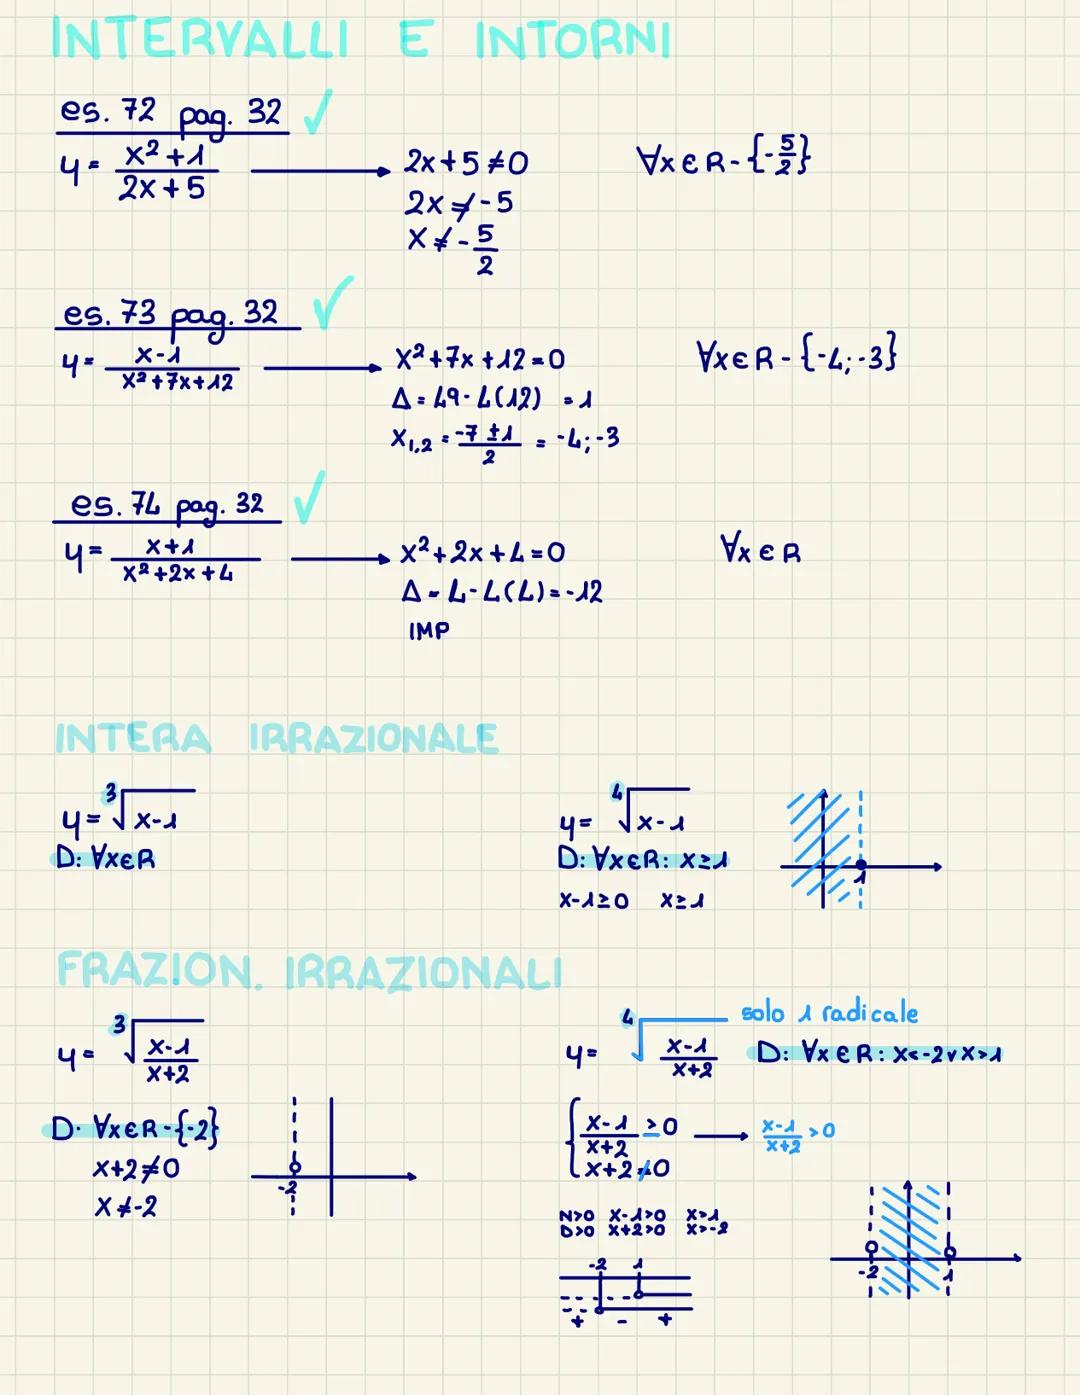 INTERVALLI E INTORNI
es. 72 pag. 32 ✓
y = (x²+1)/(2x+5) → 2x+5≠0 ∀x∈R-{-5/2}
2x≠-5
x≠-5/2
es. 73 pag. 32 ✓
y = (x-1)/(x²+7x+12) → x²+7x+12=0 ∀x∈R-{-4;-3}
Δ=49-4(12) =1
x₁,₂ = (-7±1)/2 = -4;-3
es. 74 pag. 32 ✓
y = (x+1)/(x²+2x+4) → x²+2x+4=0 ∀x∈R
Δ=4-4(4)=-12
IMP
INTERA IRRAZIONALE
y = ∛(x-1)
D: ∀x∈R
y = ∜(x-1)
D: ∀x∈R: x≥1
x-1≥0 x≥1
1
FRAZION. IRRAZIONALI
y = ∛((x-1)/(x+2))
D: ∀x∈R-{-2}
x+2≠0
x≠-2
-2
y = ∜((x-1)/(x+2)) solo 1 radicale
D: ∀x∈R: x<-2 v x>1
{(x-1)/(x+2) ≥0 → (x-1)/(x+2) >0
x+2≠0
N>0 x-1>0 x>1
D>0 x+2>0 x>-2
-2 1
+ - +
-2 1